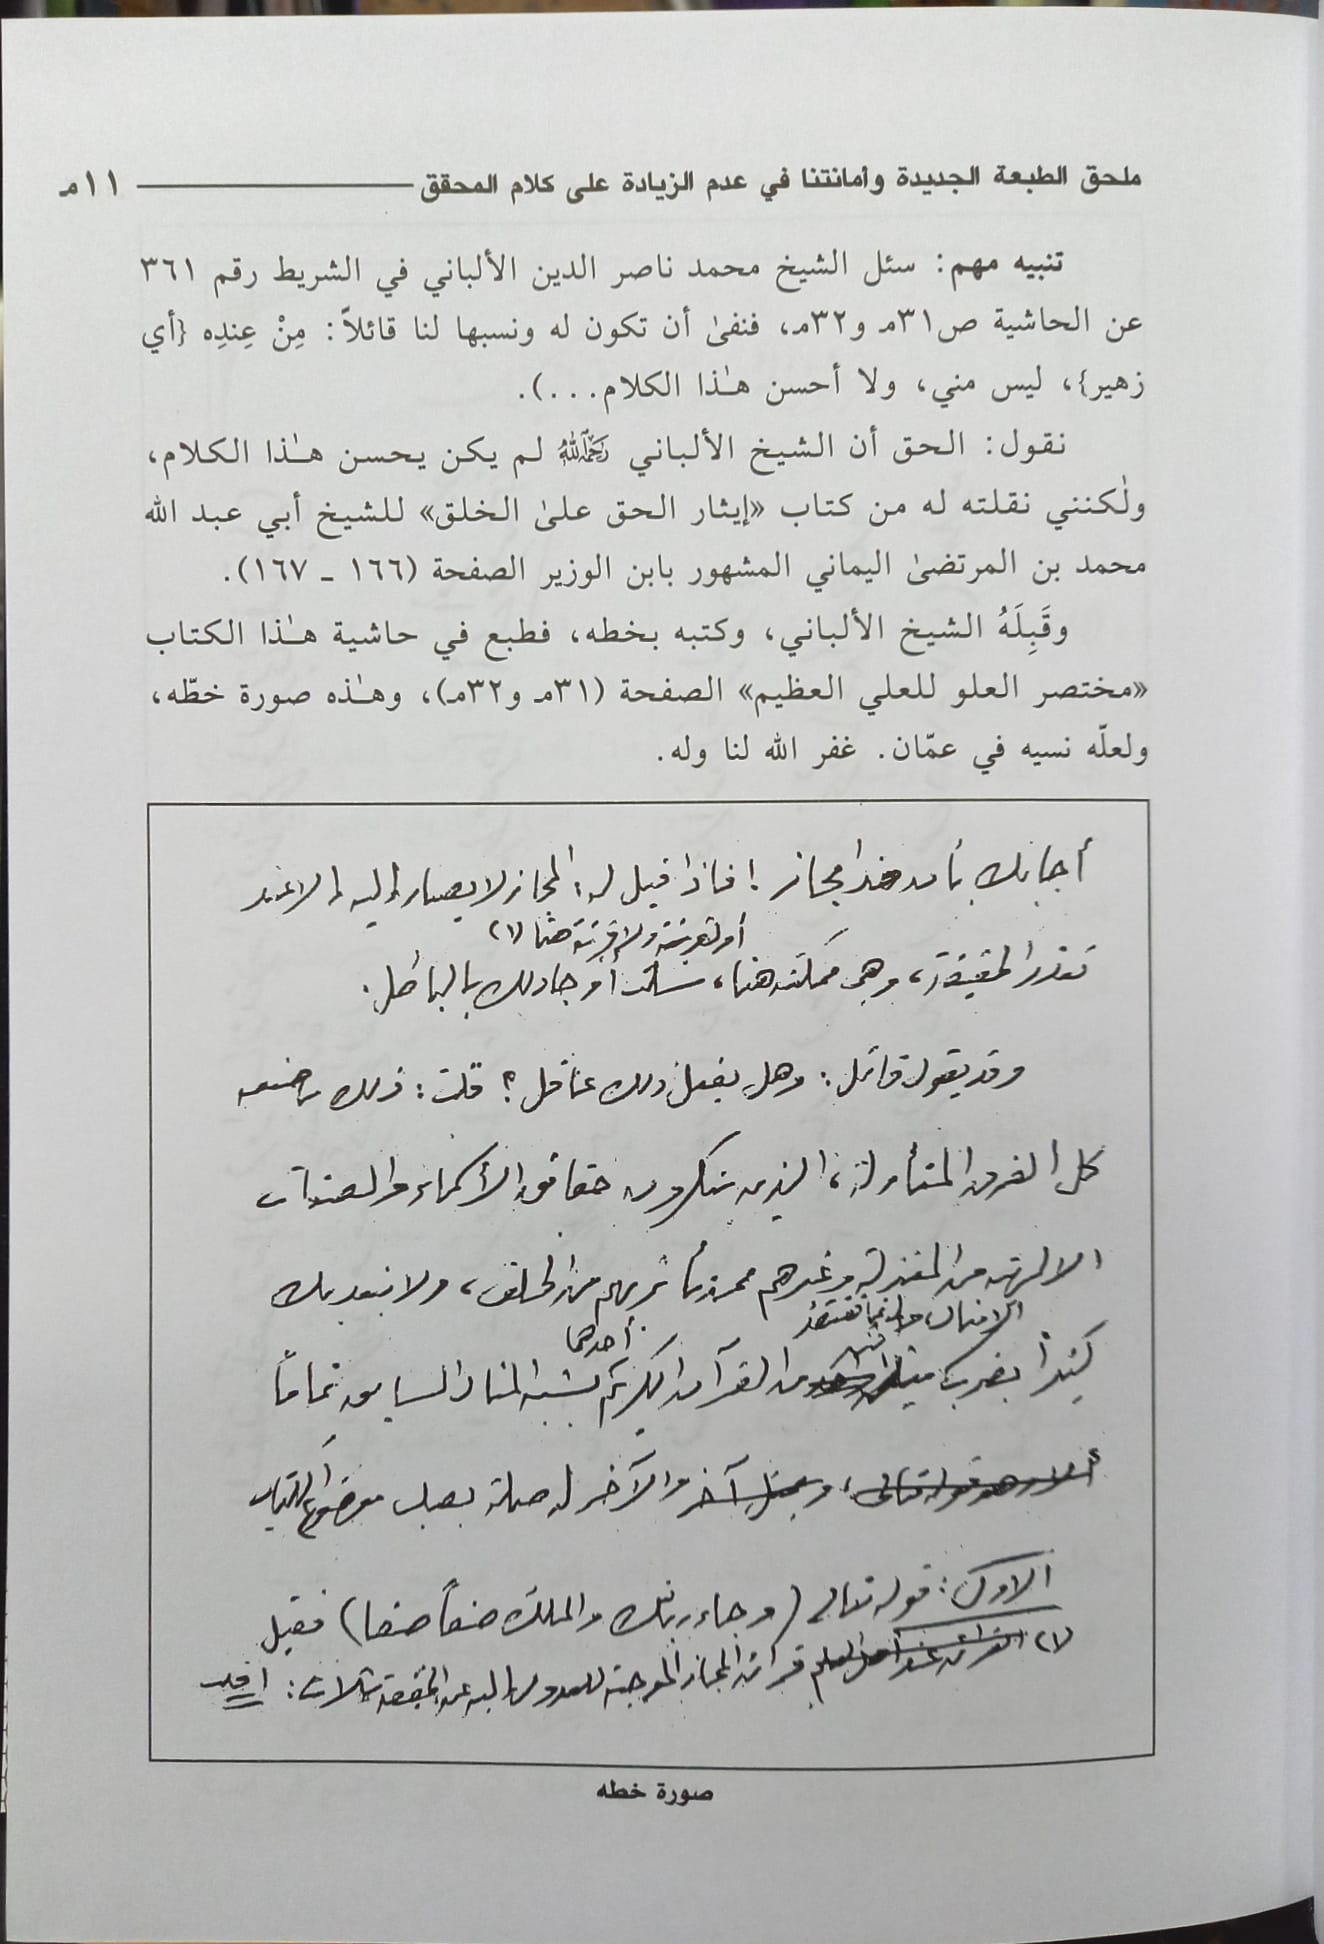 ملحق الطبعة الجديدة وأمانتنا في عدم الزيادة على كلام المحقق ــــــــــ ١١م
تنبيه مهم: سئل الشيخ محمد ناصر الدين الألباني في الشريط رقم ٣٦١
عن الحاشية ص٣١م و٣٢م، فنفىٰ أن تكون له ونسبها لنا قائلاً: مِنْ عِندِه {أي
زهير}، ليس مني، ولا أحسن هـٰذا الكلام...).
نقول: الحق أن الشيخ الألباني رَحِمَهُ اللهُ لم يكن يحسن هـٰذا الكلام،
ولٰكنني نقلته له من كتاب «إيثار الحق علىٰ الخلق» للشيخ أبي عبد الله
محمد بن المرتضىٰ اليماني المشهور بابن الوزير الصفحة (١٦٦ ـ ١٦٧).
وقَبِلَهُ الشيخ الألباني، وكتبه بخطه، فطبع في حاشية هـٰذا الكتاب
«مختصر العلو للعلي العظيم» الصفحة (٣١م و٣٢م)، وهـٰذه صورة خطّه،
ولعلّه نسيه في عمّان. غفر الله لنا وله.
أجابك بأن هذا مجاز! فإذا قيل له: المجاز لا يصار إليه إلا عند
أو لقرينة ولا قرينة هنا (١)
تعذر الحقيقة، وهي ممكنة هنا، سكت أو جادلك بالباطل.
وقد يقول قائل: وهل يفعل ذلك عاقل؟ قلت: ذلك ما صنعه
كل الفرق المتأولة، الذين ينكرون حقائق الأسماء والصفات
الالهية من المعتزلة وغيرهم ممن تأثر بهم من الخلف، ولا نبعد بك
الأمثال، وإنما نقتصر
كثيراً بضرب مثلين من القرآن الكريم أحدهما يشبه المثال السابق تماماً
والآخر له صلة بصلب موضوع الكتاب
الأول: قوله تعالى (وجاء ربك والملك صفاً صفا) فقيل
(١) قرائن المجاز الموجبة للعدول إليه عن الحقيقة ثلاث: اقلب
صورة خطه